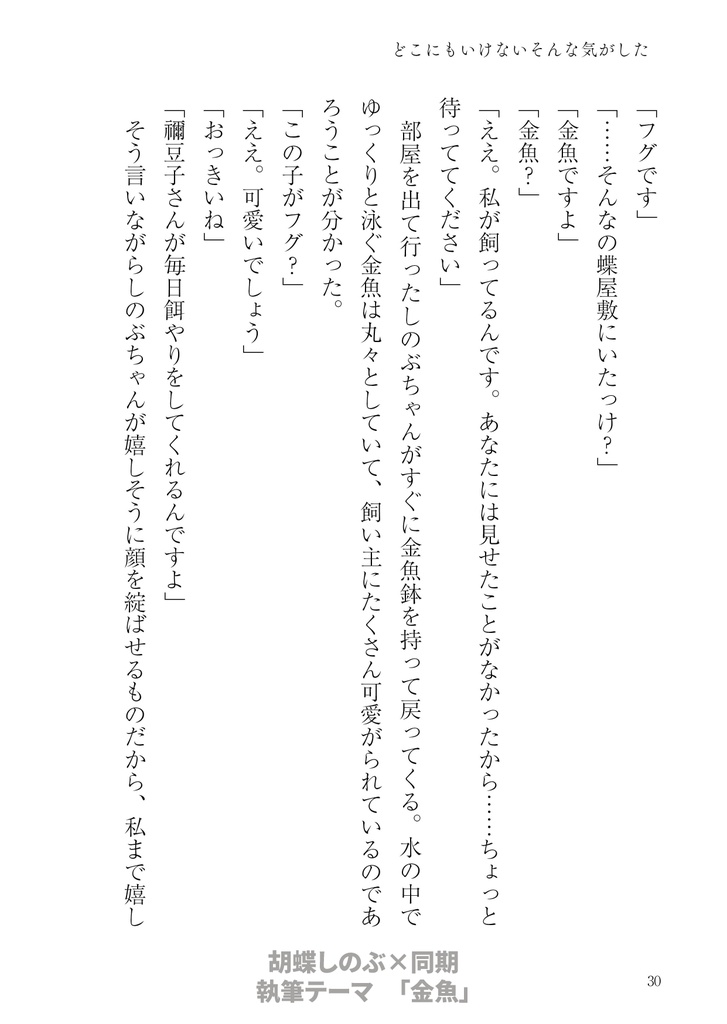 どこにもいけないそんな気がした
「フグです」
「……そんなの蝶屋敷にいたっけ?」
「金魚ですよ」
「金魚?」
「ええ。私が飼ってるんです。あなたには見せたことがなかったから……ちょっと
待っててください」
部屋を出て行ったしのぶちゃんがすぐに金魚鉢を持って戻ってくる。水の中で
ゆっくりと泳ぐ金魚は丸々としていて、飼い主にたくさん可愛がられているのであ
ろうことが分かった。
「この子がフグ?」
「ええ。可愛いでしょう」
「おっきいね」
「禰豆子さんが毎日餌やりをしてくれるんですよ」
そう言いながらしのぶちゃんが嬉しそうに顔を綻ばせるものだから、私まで嬉し
胡蝶しのぶ×同期
執筆テーマ 「金魚」
30